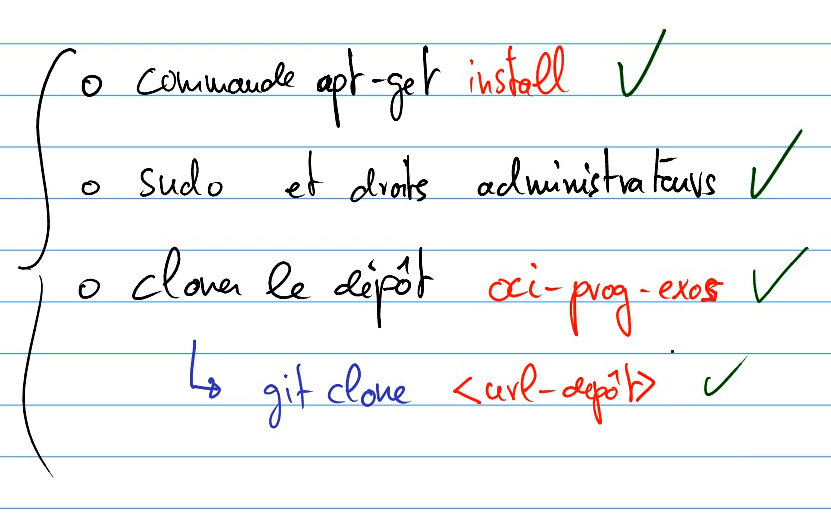 o commande apt-get install ✓
o sudo et droits administrateurs ✓
o cloner le dépôt oci-prog-exos ✓
↳ git clone <url-dépôt> ✓